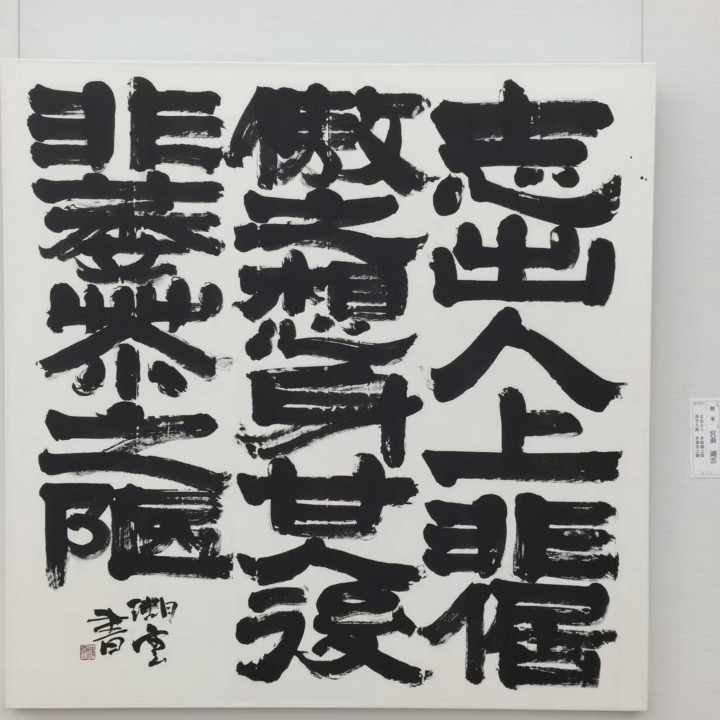 志出人上非倨
傲之想身甘人後
非萎苶之陋
湖雲
書